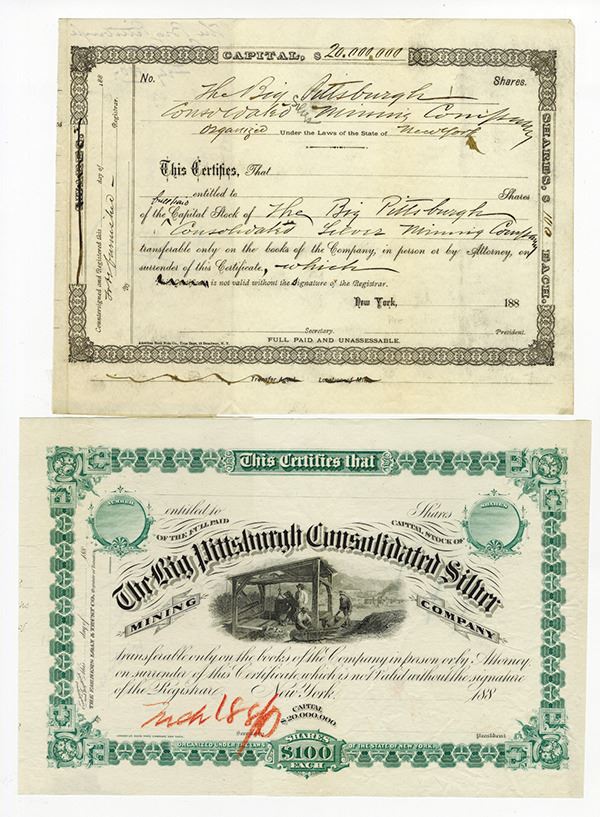 CAPITAL, $ 20,000,000
No.
Shares.
The Big Pittsburgh
Consolidated Silver Mining Company
Organized Under the Laws of the State of New York
This Certifies, That
full paid entitled to Shares
of the Capital Stock of The Big Pittsburgh
Consolidated Silver Mining Company
transferable only on the books of the Company, in person or by Attorney, on
surrender of this Certificate, which
is not valid without the Signature of the Registrar.
New York, 188
Secretary.
President.
American Bank Note Co.
FULL PAID AND UNASSESSABLE.
Transfer Agent. Location of Mine
SHARES, $ 100 EACH.
Countersigned and Registered this day of 188
By Registrar.
This Certifies that
NUMBER
SHARES
entitled to Shares
OF THE FULL PAID CAPITAL STOCK OF
The Big Pittsburgh Consolidated Silver
MINING COMPANY
transferable only on the books of the Company in person or by Attorney
on surrender of this Certificate which is not Valid without the signature
of the Registrar. New York, 188
CAPITAL
$20,000,000.
Mch 1880
Secretary
President
ORGANIZED UNDER THE LAWS OF THE STATE OF NEW YORK.
SHARES
$100
EACH
THE FARMERS LOAN & TRUST CO.